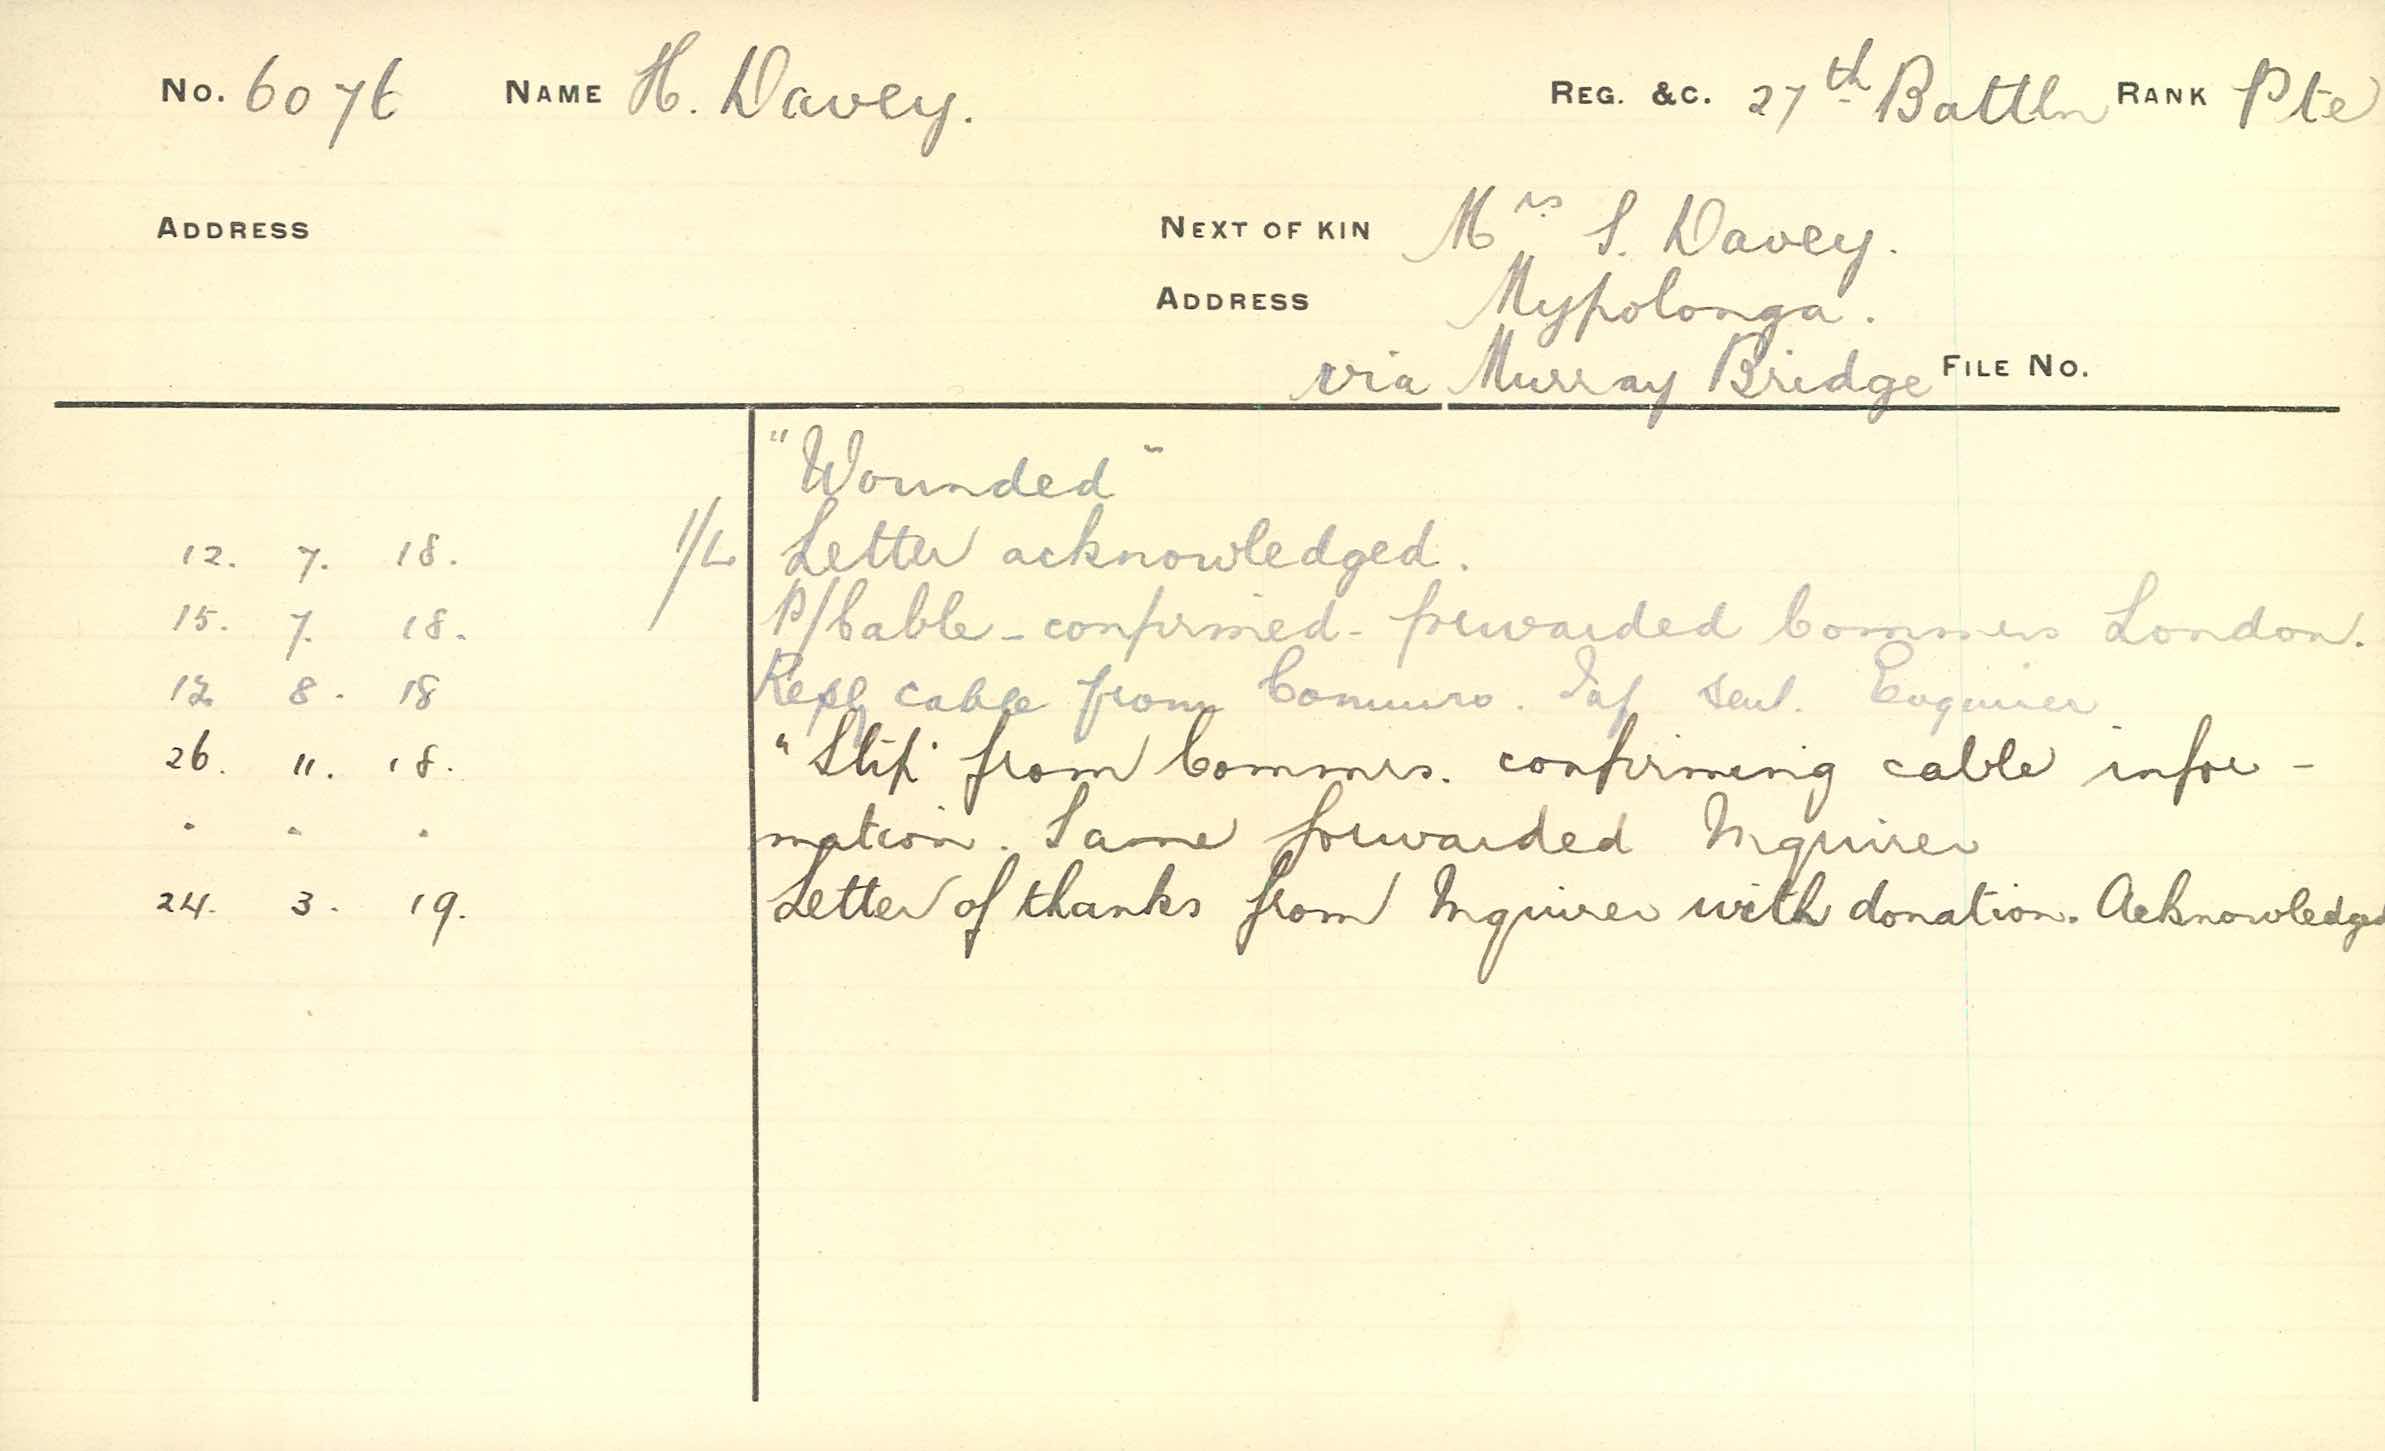 No. 6076 NAME H. Davey. REG. &C. 27th Battln RANK Pte
ADDRESS NEXT OF KIN Mrs S. Davey.
ADDRESS Mypolonga.
via Murray Bridge FILE No.
"Wounded"
12. 7. 18. Letter acknowledged.
15. 7. 18. P/Cable - confirmed - forwarded Commrs London.
12. 8. 18 Reply cable from Commrs. Inf sent. Enquirer
26. 11. 18. "Slip" from Commrs. confirming cable infor-
" " " mation. Same forwarded Inquirer
24. 3. 19. Letter of thanks from Inquirer with donation. Acknowledged